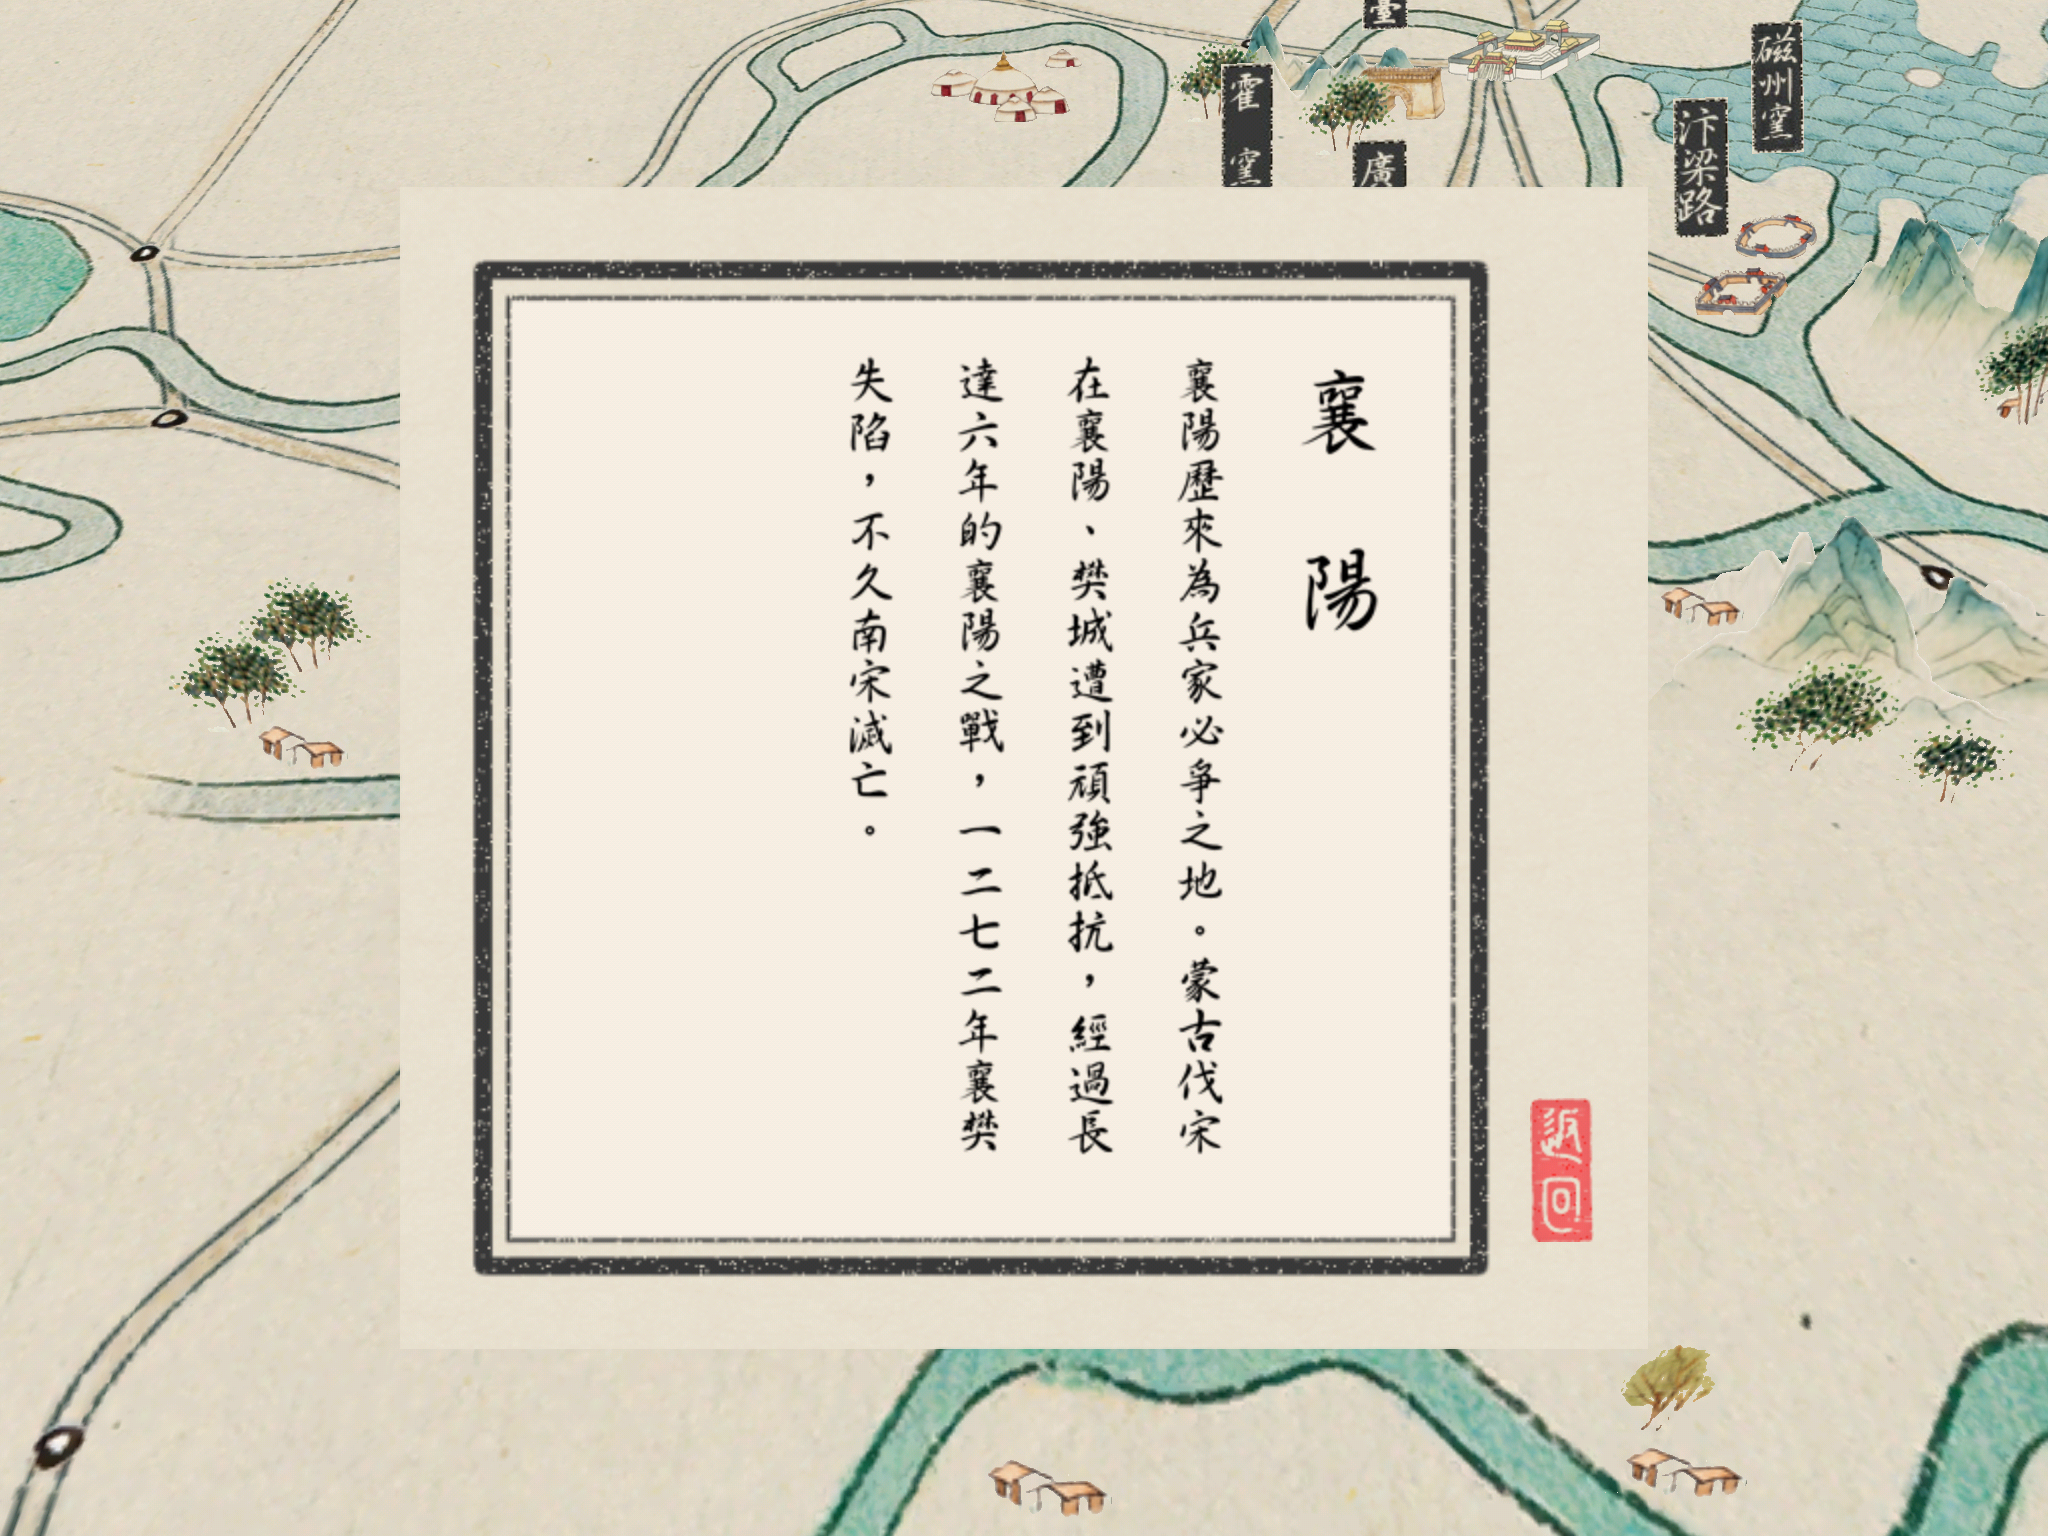 襄陽
襄陽歷來為兵家必爭之地。蒙古伐宋
在襄陽、樊城遭到頑強抵抗，經過長
達六年的襄陽之戰，一二七二年襄樊
失陷，不久南宋滅亡。
返回
磁州窯
汴梁路
臺
廣
霍窯